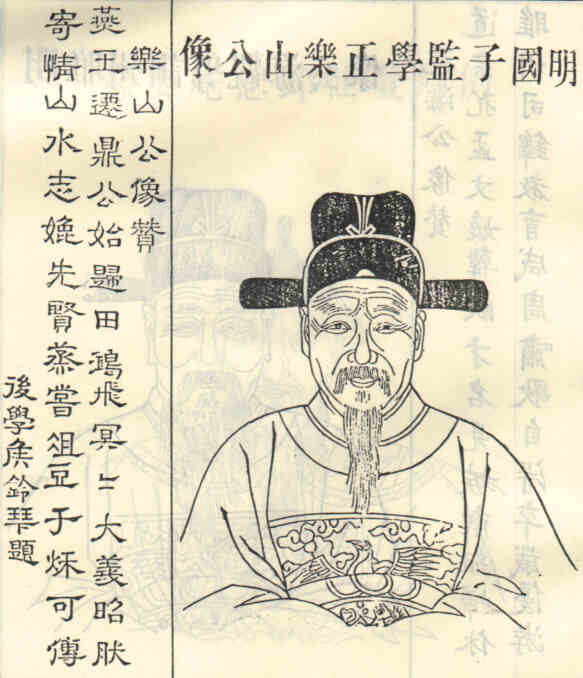 明國子監學正樂山公像
樂山公像贊
燕王遷鼎公始歸田鴻飛冥〻大義昭肰
寄情山水志媲先賢蒸嘗俎豆千秌可傳
後學侯鈴琹題